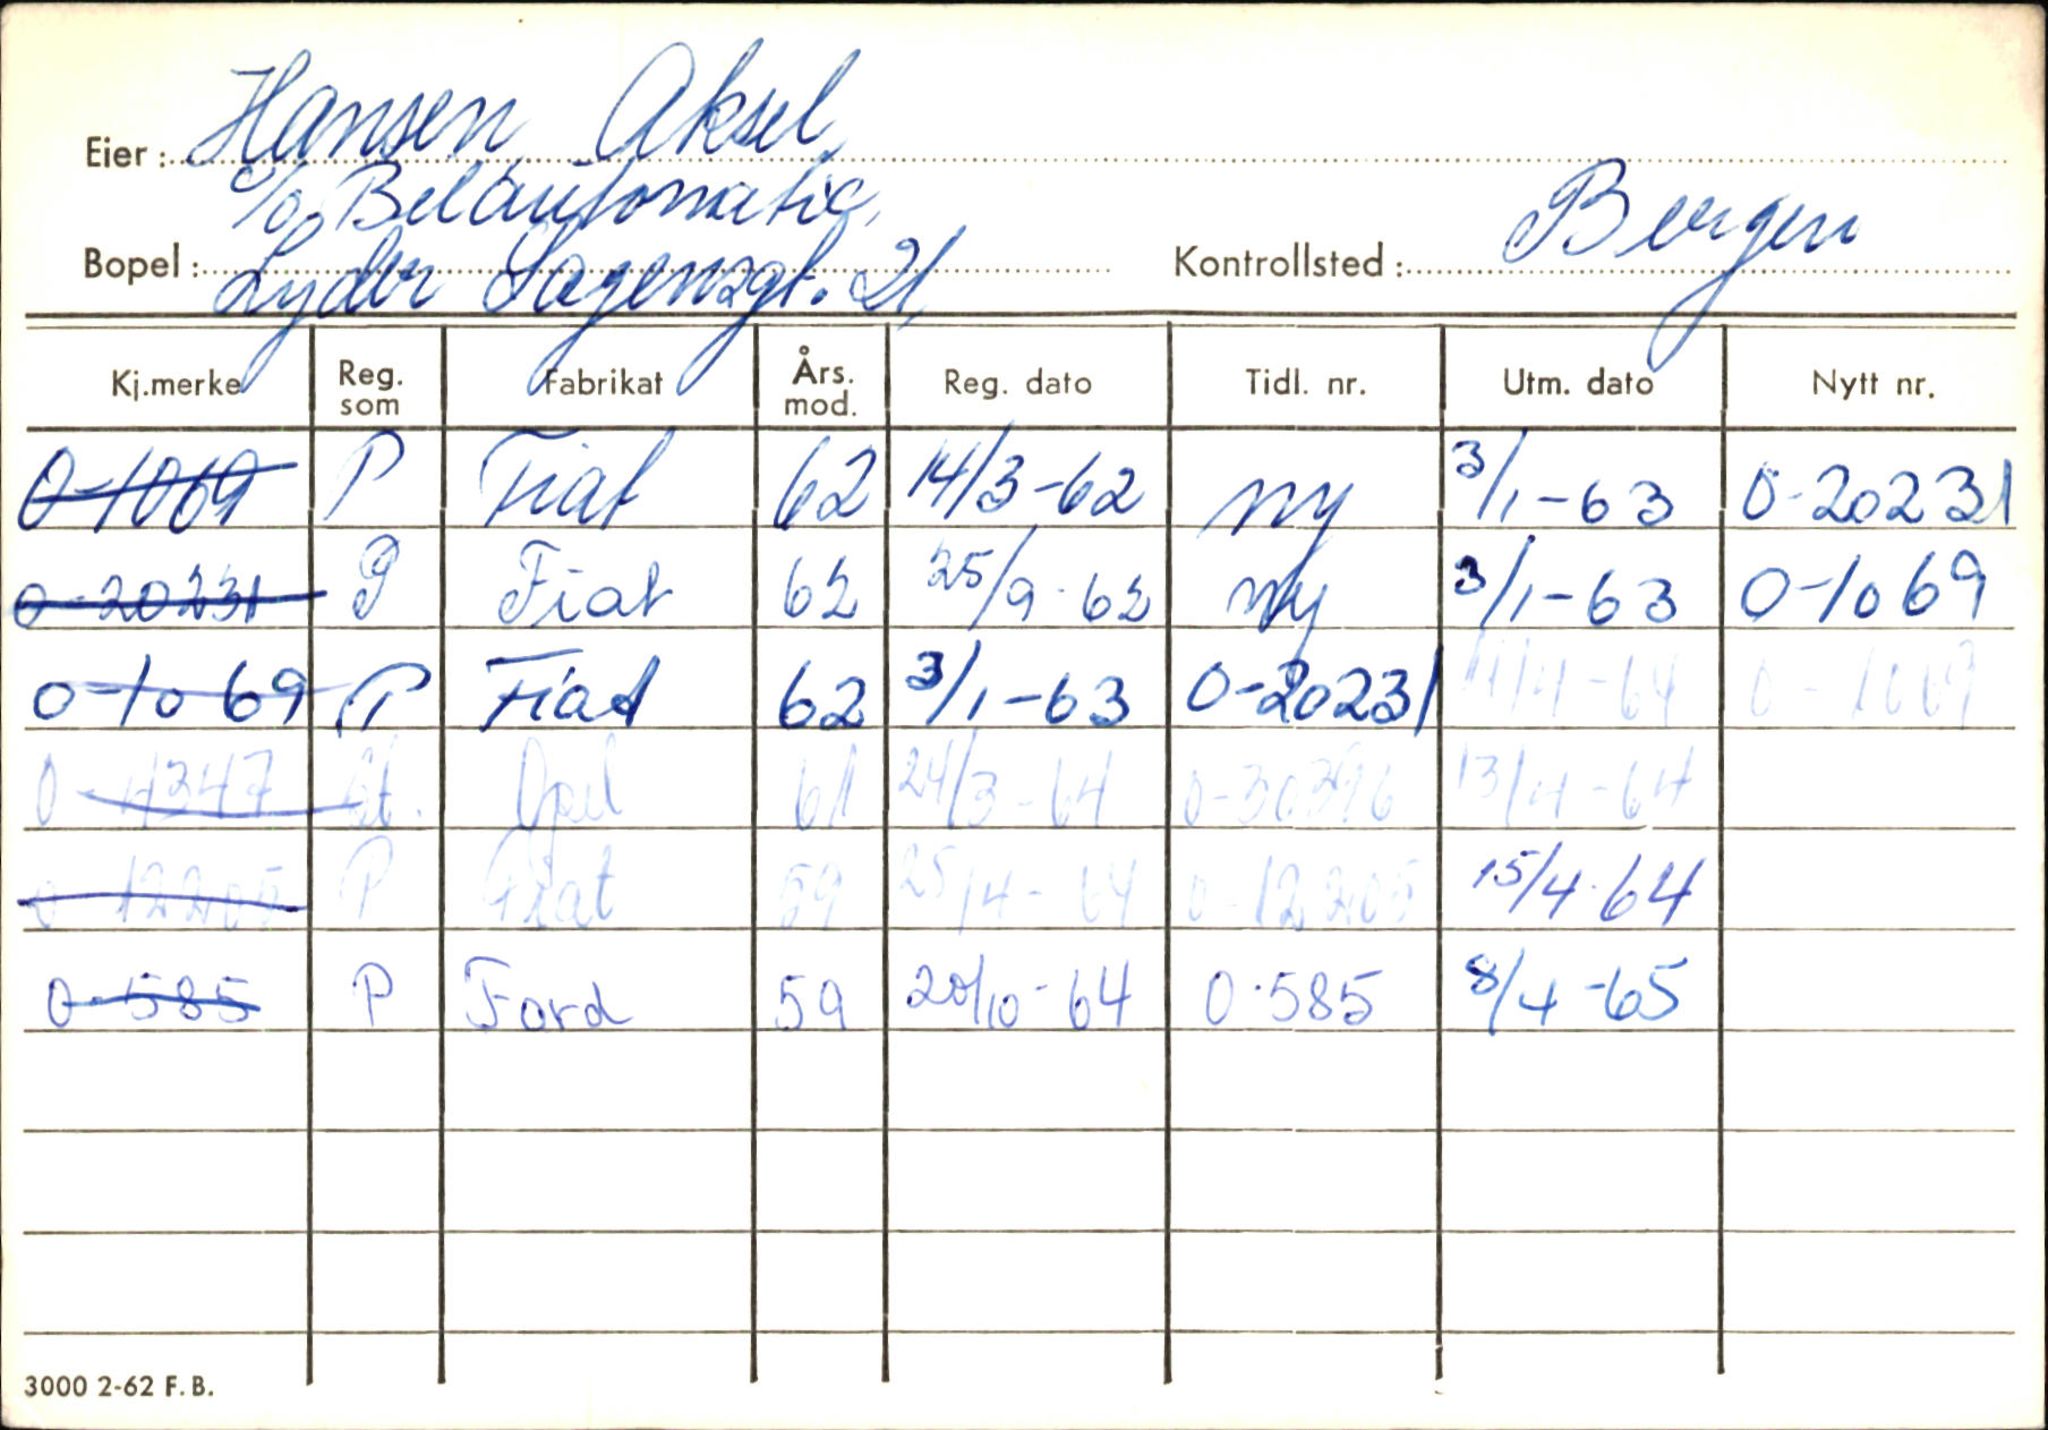 Eier: Hansen Aksel
c/o Belautomatic,
Bopel: Lyder Sagensgt. 21, Kontrollsted: Bergen
Kj.merke Reg. som Fabrikat Års. mod. Reg. dato Tidl. nr. Utm. dato Nytt nr.
O-1069 P Fiat 62 14/3-62 ny 3/1-63 O-20231
O-20231 P Fiat 62 25/9-62 ny 3/1-63 O-1069
O-1069 P Fiat 62 3/1-63 O-20231 11/4-64 O-1069
O-4347 St. Opel 61 24/3-64 O-30396 13/4-64
O-12205 P Fiat 59 25/4-64 O-12205 15/4-64
O-585 P Ford 59 20/10-64 O-585 8/4-65
3000 2-62 F. B.